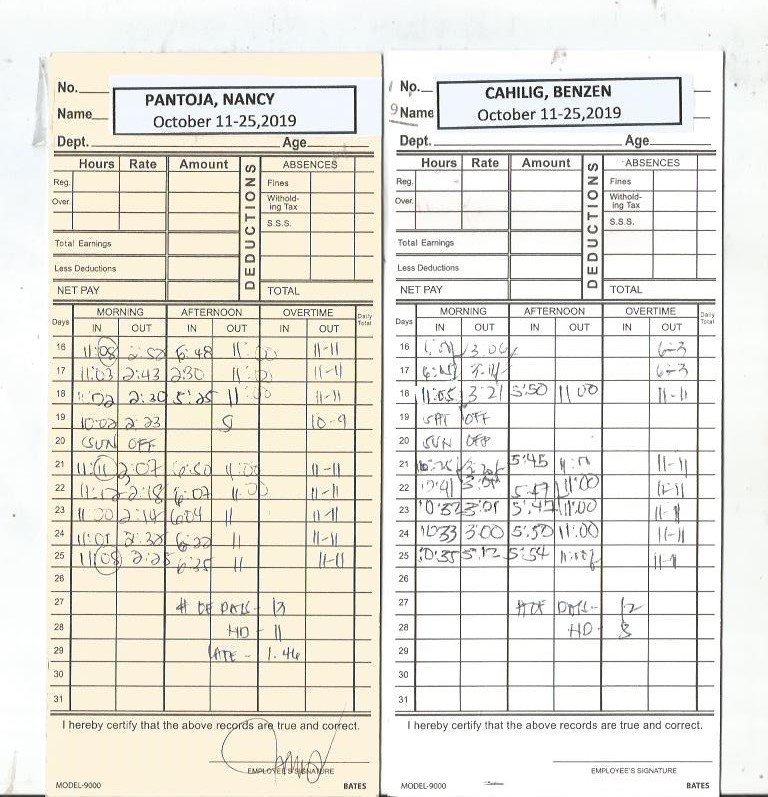 No.
PANTOJA, NANCY
Name
October 11-25,2019
Dept. Age
Hours Rate Amount DEDUCTIONS ABSENCES
Reg. Fines
Over. Withold-
ing Tax
S.S.S.
Total Earnings
Less Deductions
NET PAY TOTAL
Days MORNING AFTERNOON OVERTIME Daily Total
IN OUT IN OUT IN OUT
16 11:08 2:52 6:48 11:00 11-11
17 11:03 2:43 2:30 11:00 11-11
18 11:02 2:30 5:25 11:00 11-11
19 10:02 2:23 10-9
20 SUN OFF
21 11:11 2:07 6:50 11:00 11-11
22 2:18 6:07 11:00 11-11
23 11:00 2:14 6:04 11 11-11
24 11:01 2:32 11 11-11
25 11:08 2:25 6:35 11 11-11
26
27 # OF DAYS - 13
28 HD - 11
29 LATE - 1.46
30
31
I hereby certify that the above records are true and correct.
EMPLOYEE'S SIGNATURE
MODEL-9000 BATES
No.
CAHILIG, BENZEN
Name
October 11-25,2019
Dept. Age
Hours Rate Amount DEDUCTIONS ABSENCES
Reg. Fines
Over. Withold-
ing Tax
S.S.S.
Total Earnings
Less Deductions
NET PAY TOTAL
Days MORNING AFTERNOON OVERTIME Daily Total
IN OUT IN OUT IN OUT
16 3:06 6-3
17 6-3
18 11:05 3:21 5:50 11:00 11-11
19 SAT OFF
20 SUN OFF
21 5:45 11-11
22 10:41 3:01 5:47 11:00 11-11
23 10:37 3:01 5:47 11:00 11-11
24 10:33 3:00 5:50 11:00 11-11
25 10:35 5:12 5:54 11-11
26
27 # OF DAYS - 12
28 HD - 8
29
30
31
I hereby certify that the above records are true and correct.
EMPLOYEE'S SIGNATURE
MODEL-9000 BATES